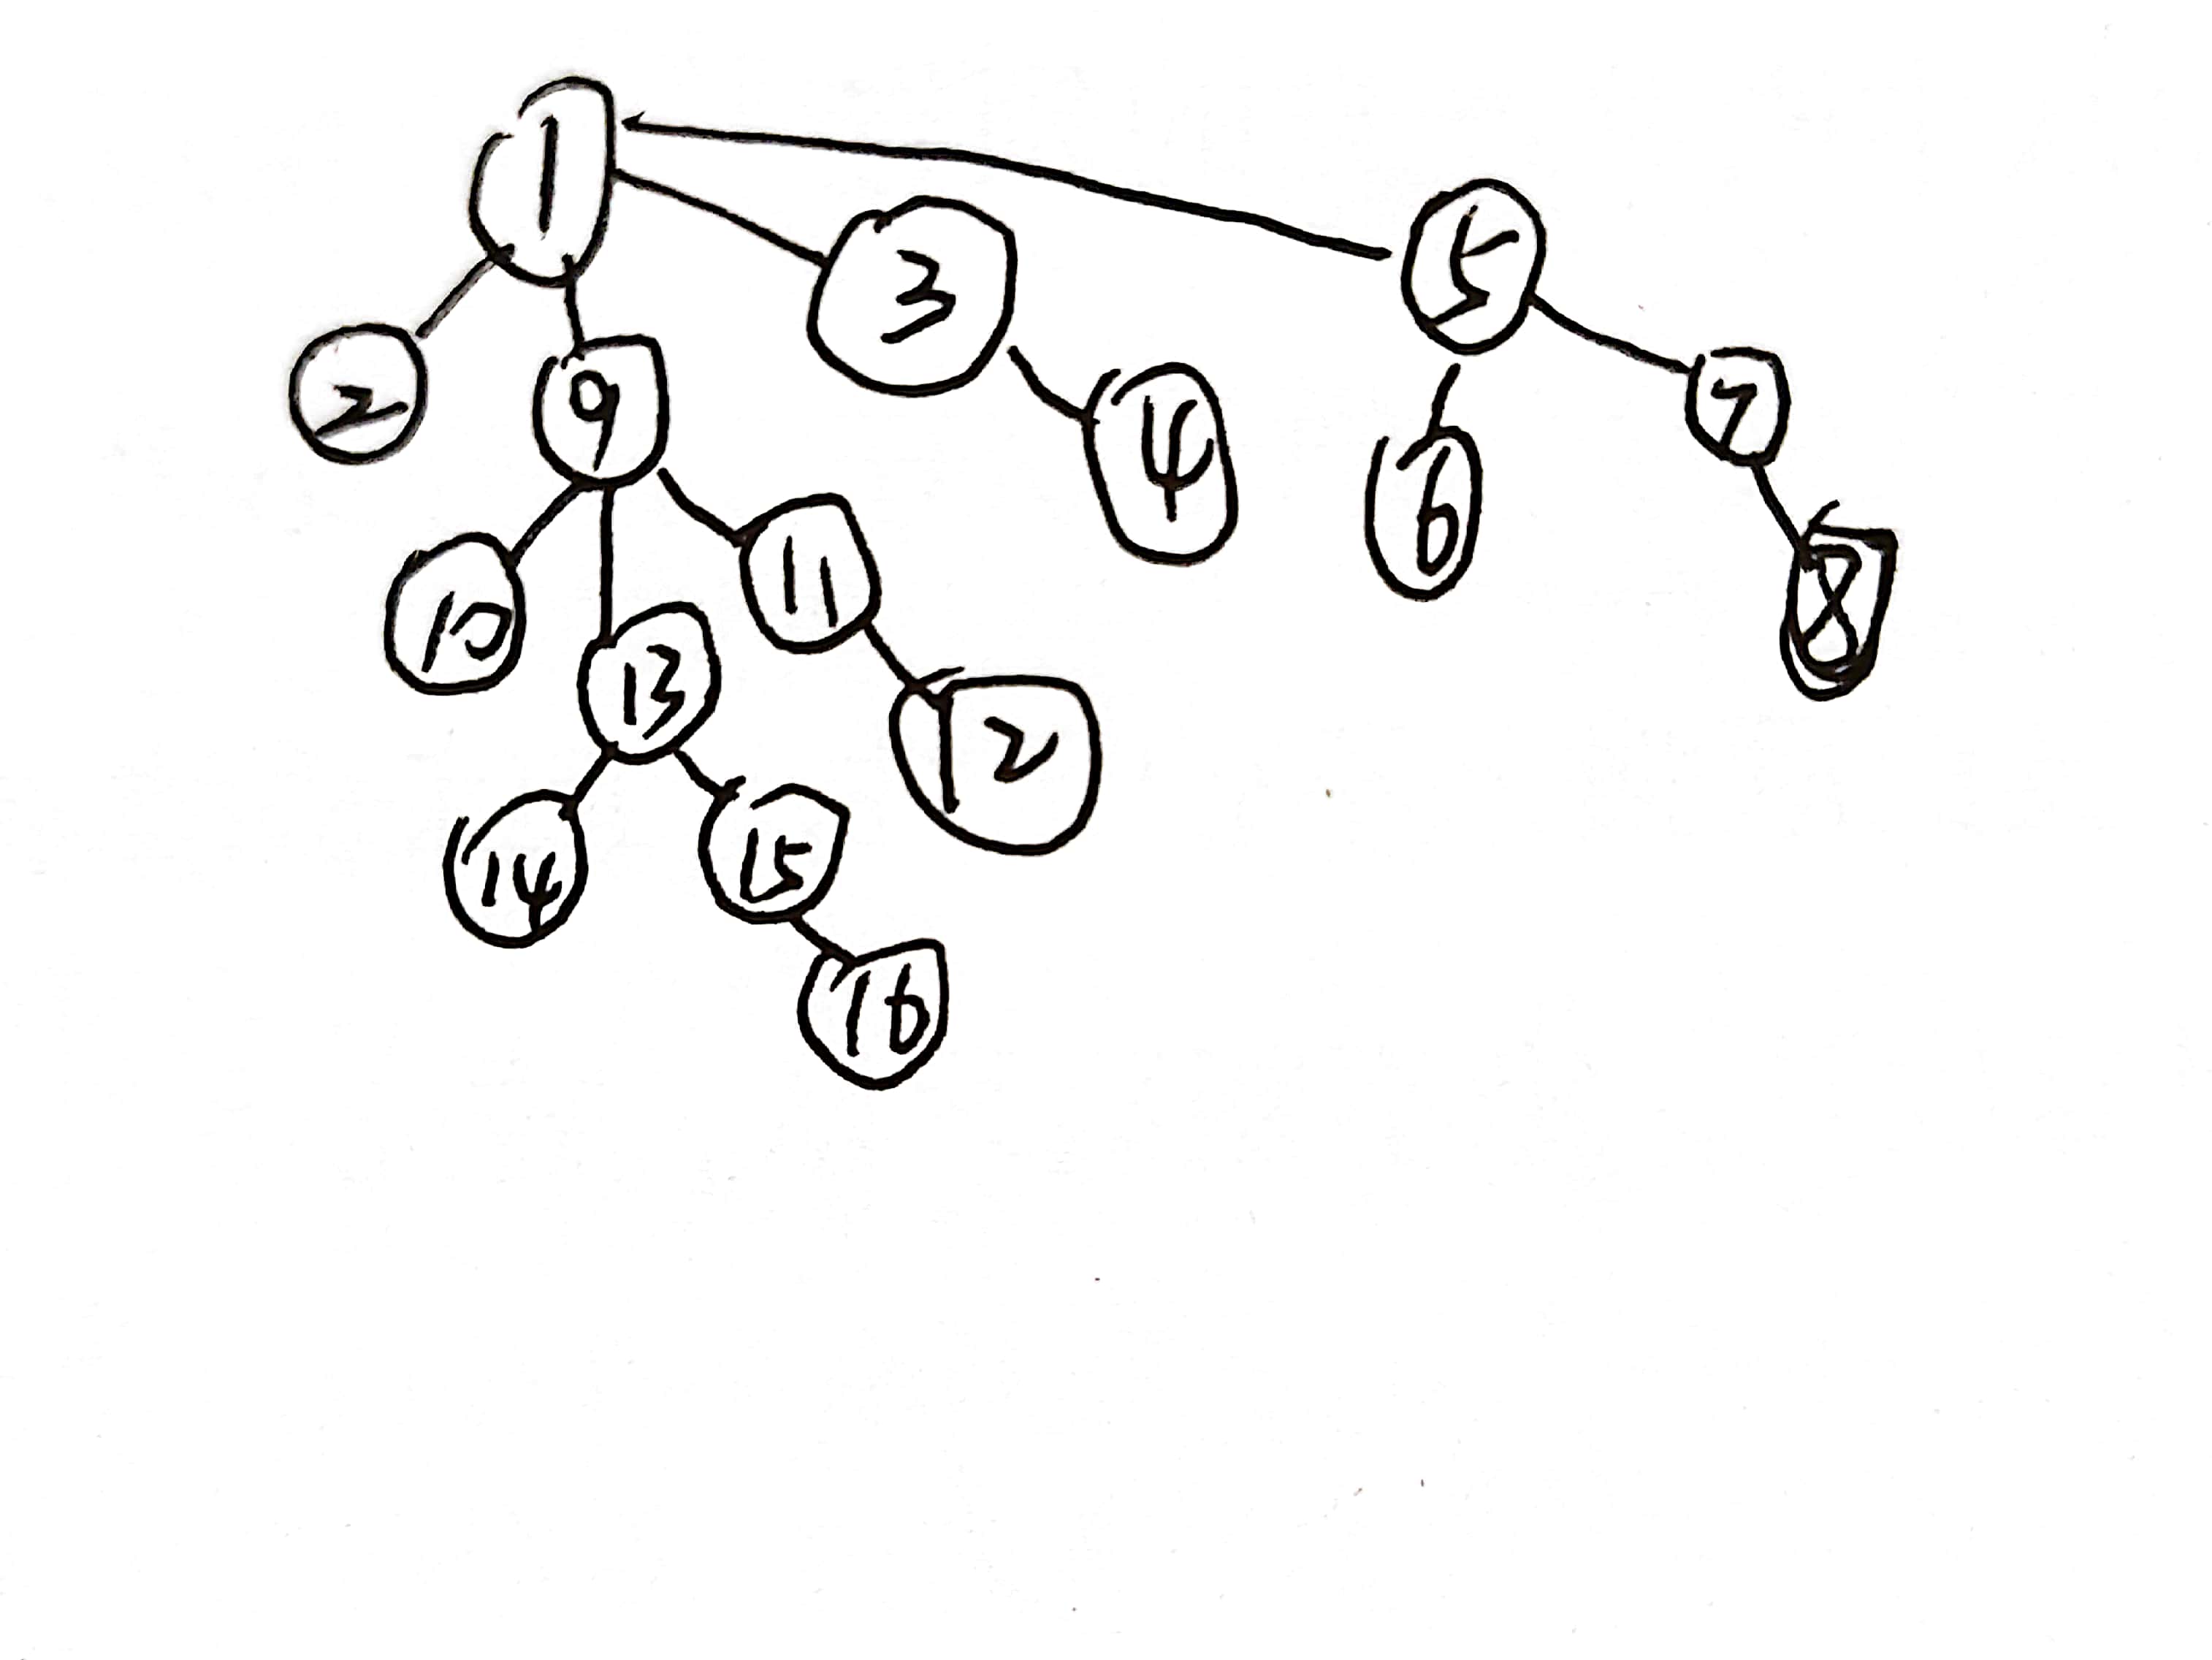 1
3
5
2
9
4
7
6
10
11
8
13
12
14
15
16